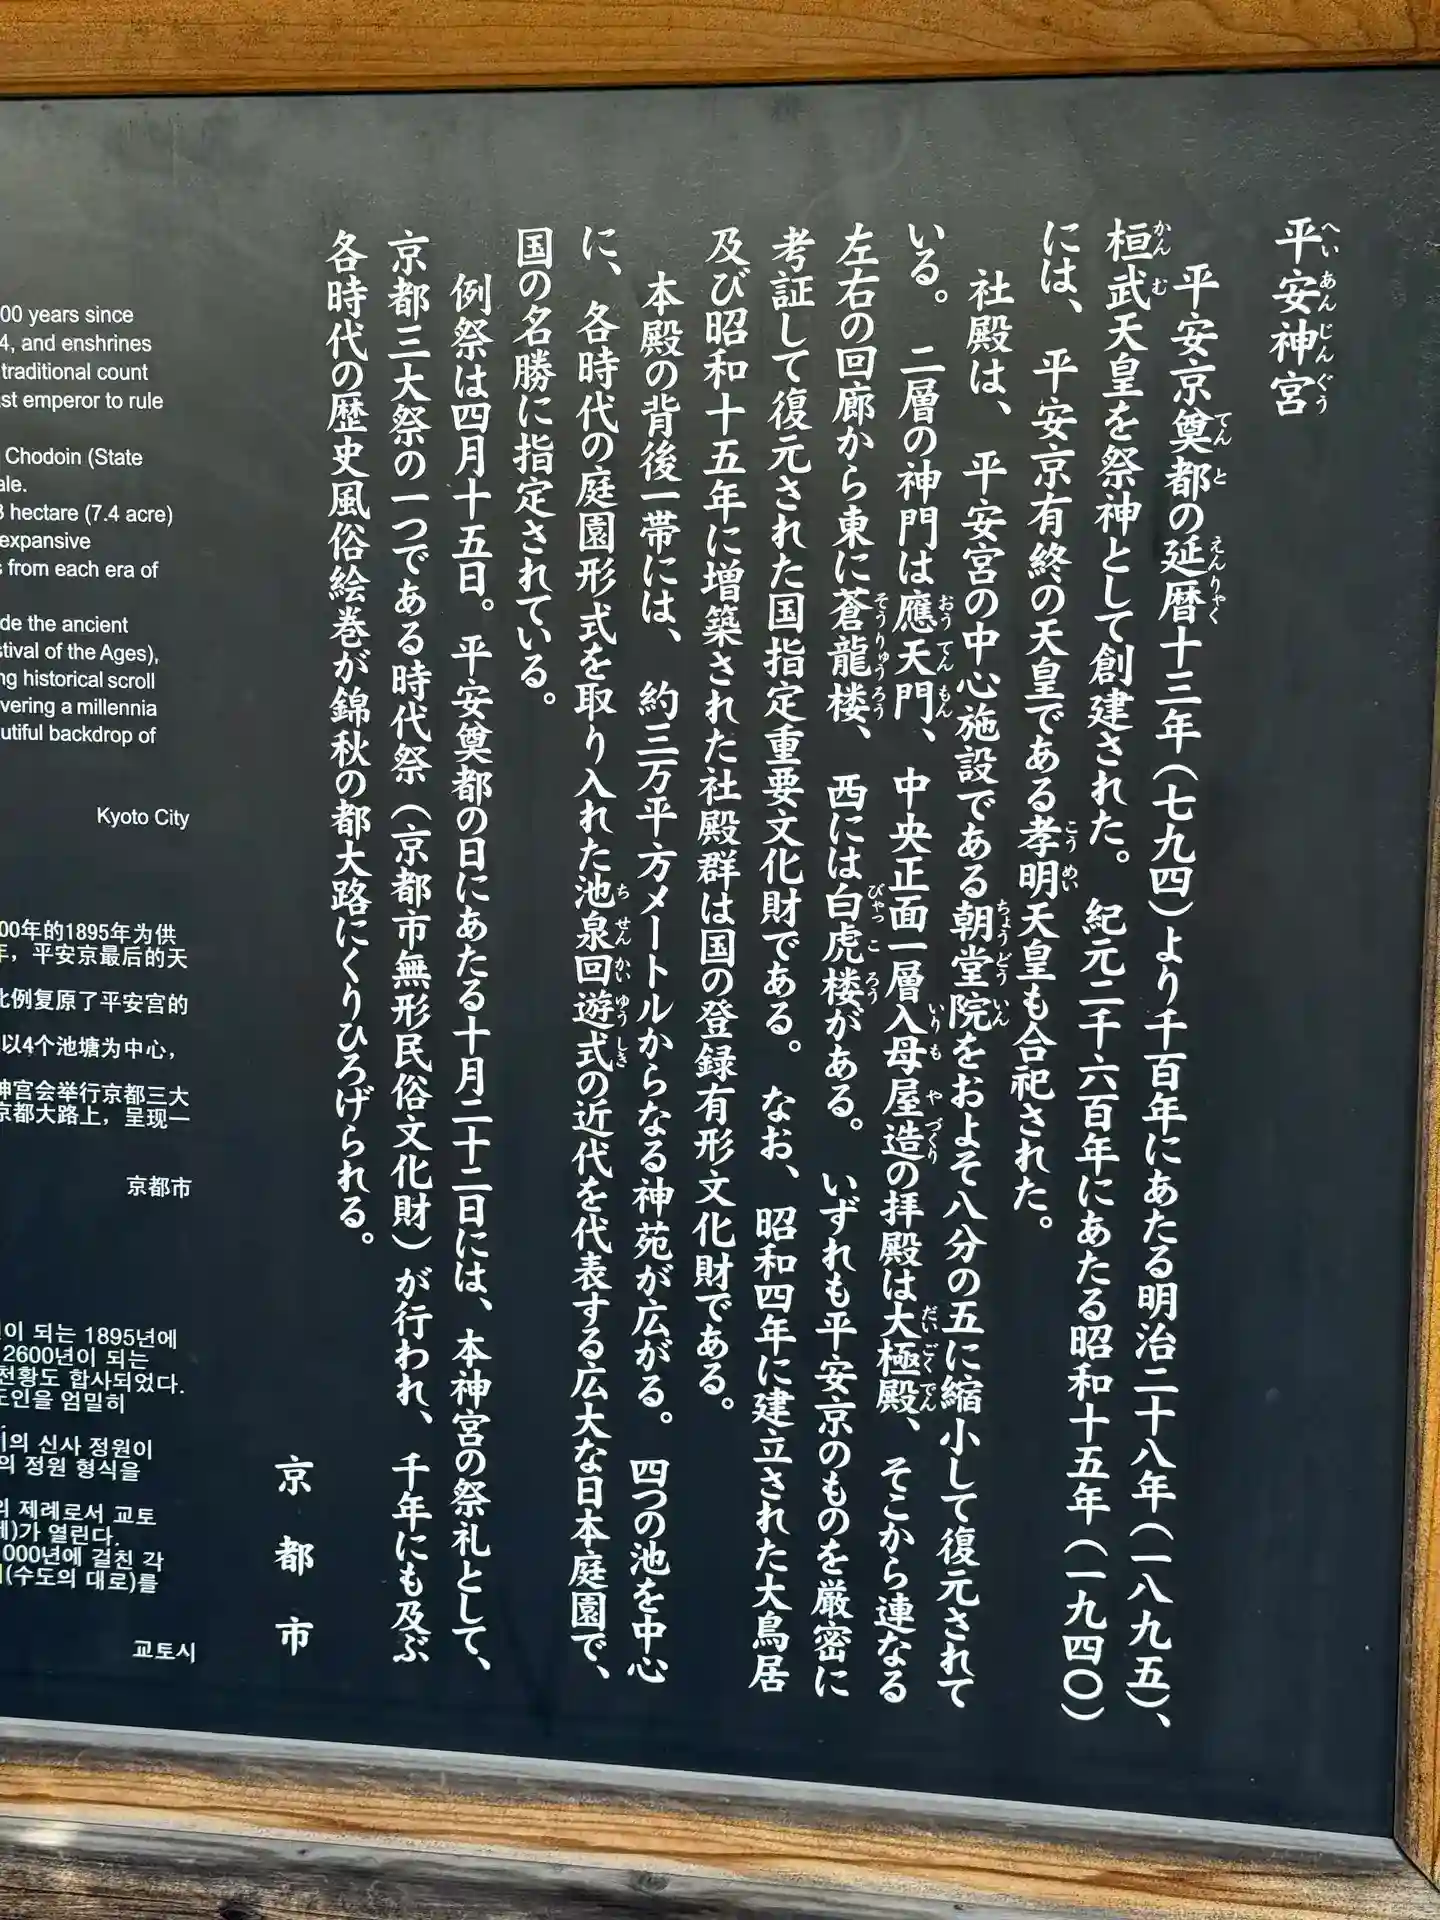 平安神宮
へいあんじんぐう
平安京奠都の延暦十三年（七九四）より千百年にあたる明治二十八年（一八九五）、
てんと えんりゃく
桓武天皇を祭神として創建された。紀元二千六百年にあたる昭和十五年（一九四〇）
かんむ
には、平安京有終の天皇である孝明天皇も合祀された。
こうめい
社殿は、平安宮の中心施設である朝堂院をおよそ八分の五に縮小して復元されて
ちょうどういん
いる。二層の神門は應天門、中央正面一層入母屋造の拝殿は大極殿、そこから連なる
おうてんもん いりもやづくり だいごくでん
左右の回廊から東に蒼龍楼、西には白虎楼がある。いずれも平安京のものを厳密に
そうりゅうろう びゃっころう
考証して復元された国指定重要文化財である。なお、昭和四年に建立された大鳥居
及び昭和十五年に増築された社殿群は国の登録有形文化財である。
本殿の背後一帯には、約三万平方メートルからなる神苑が広がる。四つの池を中心
に、各時代の庭園形式を取り入れた池泉回遊式の近代を代表する広大な日本庭園で、
ちせんかいゆうしき
国の名勝に指定されている。
例祭は四月十五日。平安奠都の日にあたる十月二十二日には、本神宮の祭礼として、
京都三大祭の一つである時代祭（京都市無形民俗文化財）が行われ、千年にも及ぶ
各時代の歴史風俗絵巻が錦秋の都大路にくりひろげられる。
京都市
00 years since
4, and enshrines
traditional count
st emperor to rule
Chodoin (State
ale.
3 hectare (7.4 acre)
expansive
s from each era of
de the ancient
stival of the Ages),
ng historical scroll
vering a millennia
utiful backdrop of
Kyoto City
00年的1895年为供
年，平安京最后的天
比例复原了平安宫的
以4个池塘为中心，
神宫会举行京都三大
京都大路上，呈现一
京都市
이 되는 1895년에
2600년이 되는
천황도 합사되었다.
도인을 엄밀히
의 신사 정원이
의 정원 형식을
의 제례로서 교토
제)가 열린다.
000년에 걸친 각
(수도의 대로)를
교토시